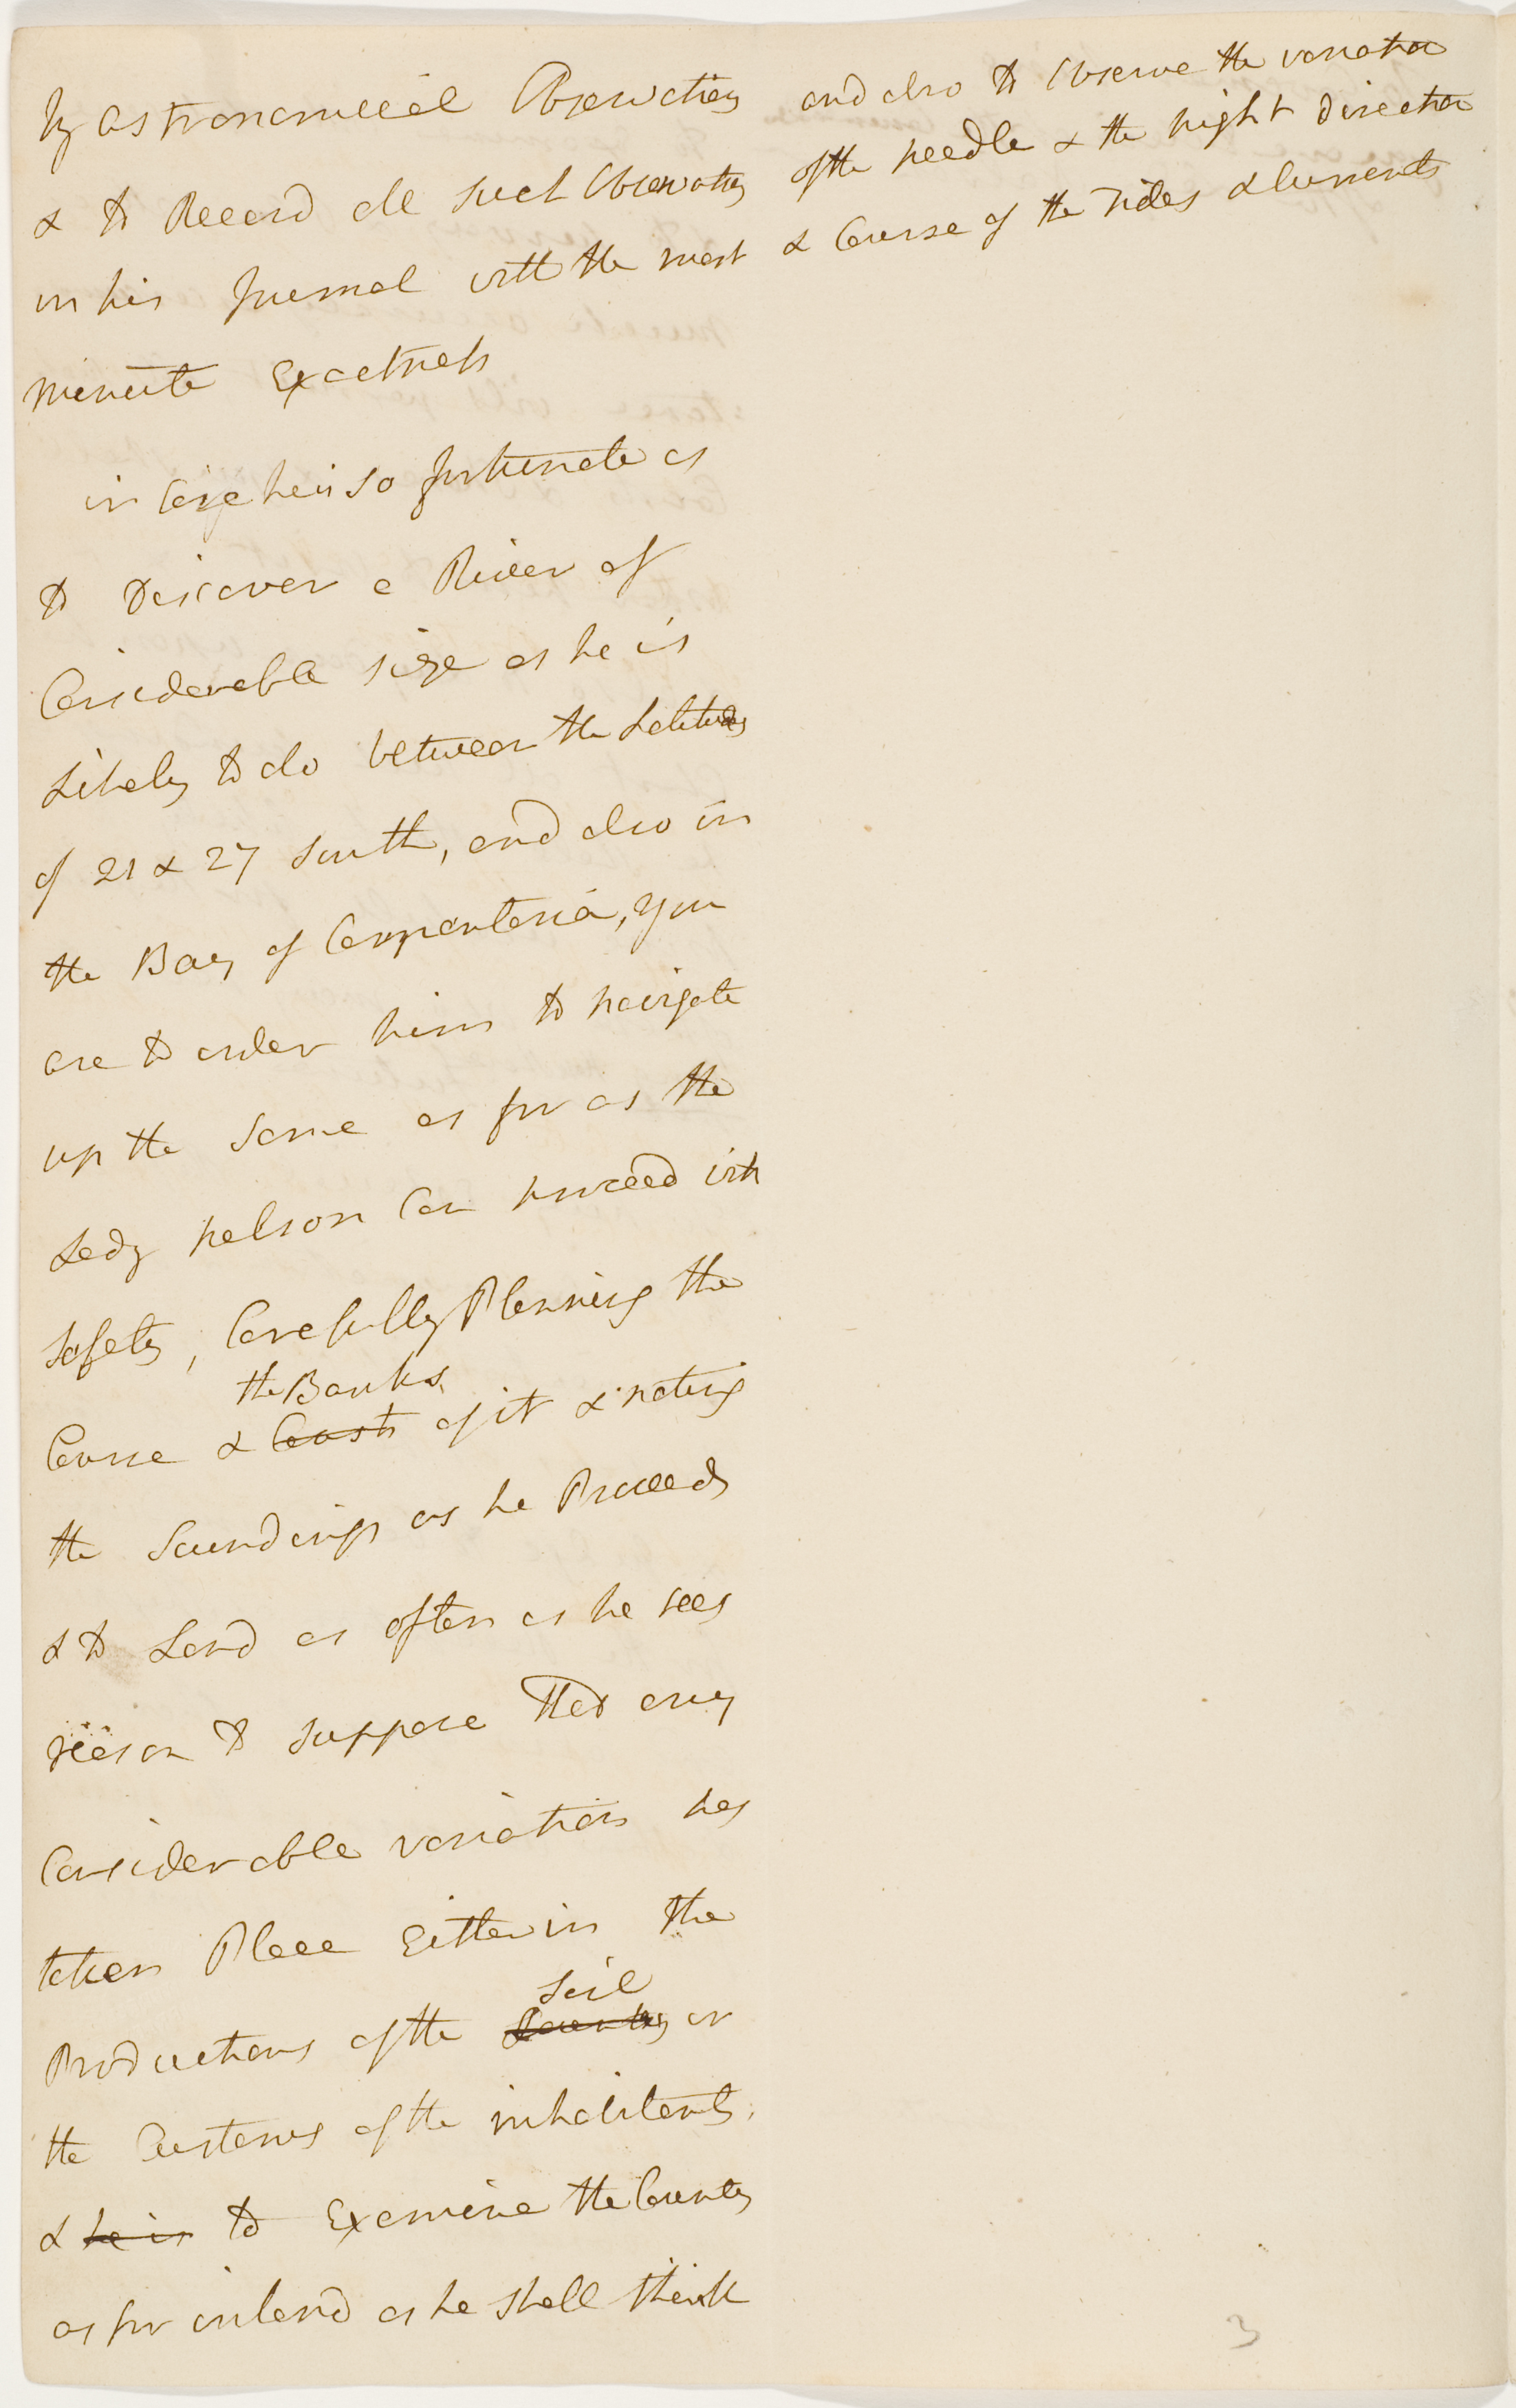 by astronomical Observations
& to Record all such Observations
in his Journal with the most
minute Exactness
and also to Observe the variation
of the needle & the hight direction
& Course of the Tides & Currents
in Case he is so fortunate as
to Discover a River of
Considerable size as he is
Likely to do between the Latitudes
of 21 & 27 South, and also in
the Bay of Carpentaria, you
are to order him to navigate
up the same as far as the
Lady Nelson Can proceed with
safety, Carefully Planning the
the Banks
Course & Coasts of it & noting
the Soundings as he Proceeds
& to Land as often as he sees
reason to suppose that any
Considerable variation has
taken Place Either in the
Soil
Productions of the Country or
the Customs of the inhabitants,
& he is to Examine the Country
as far inland as he shall think
3